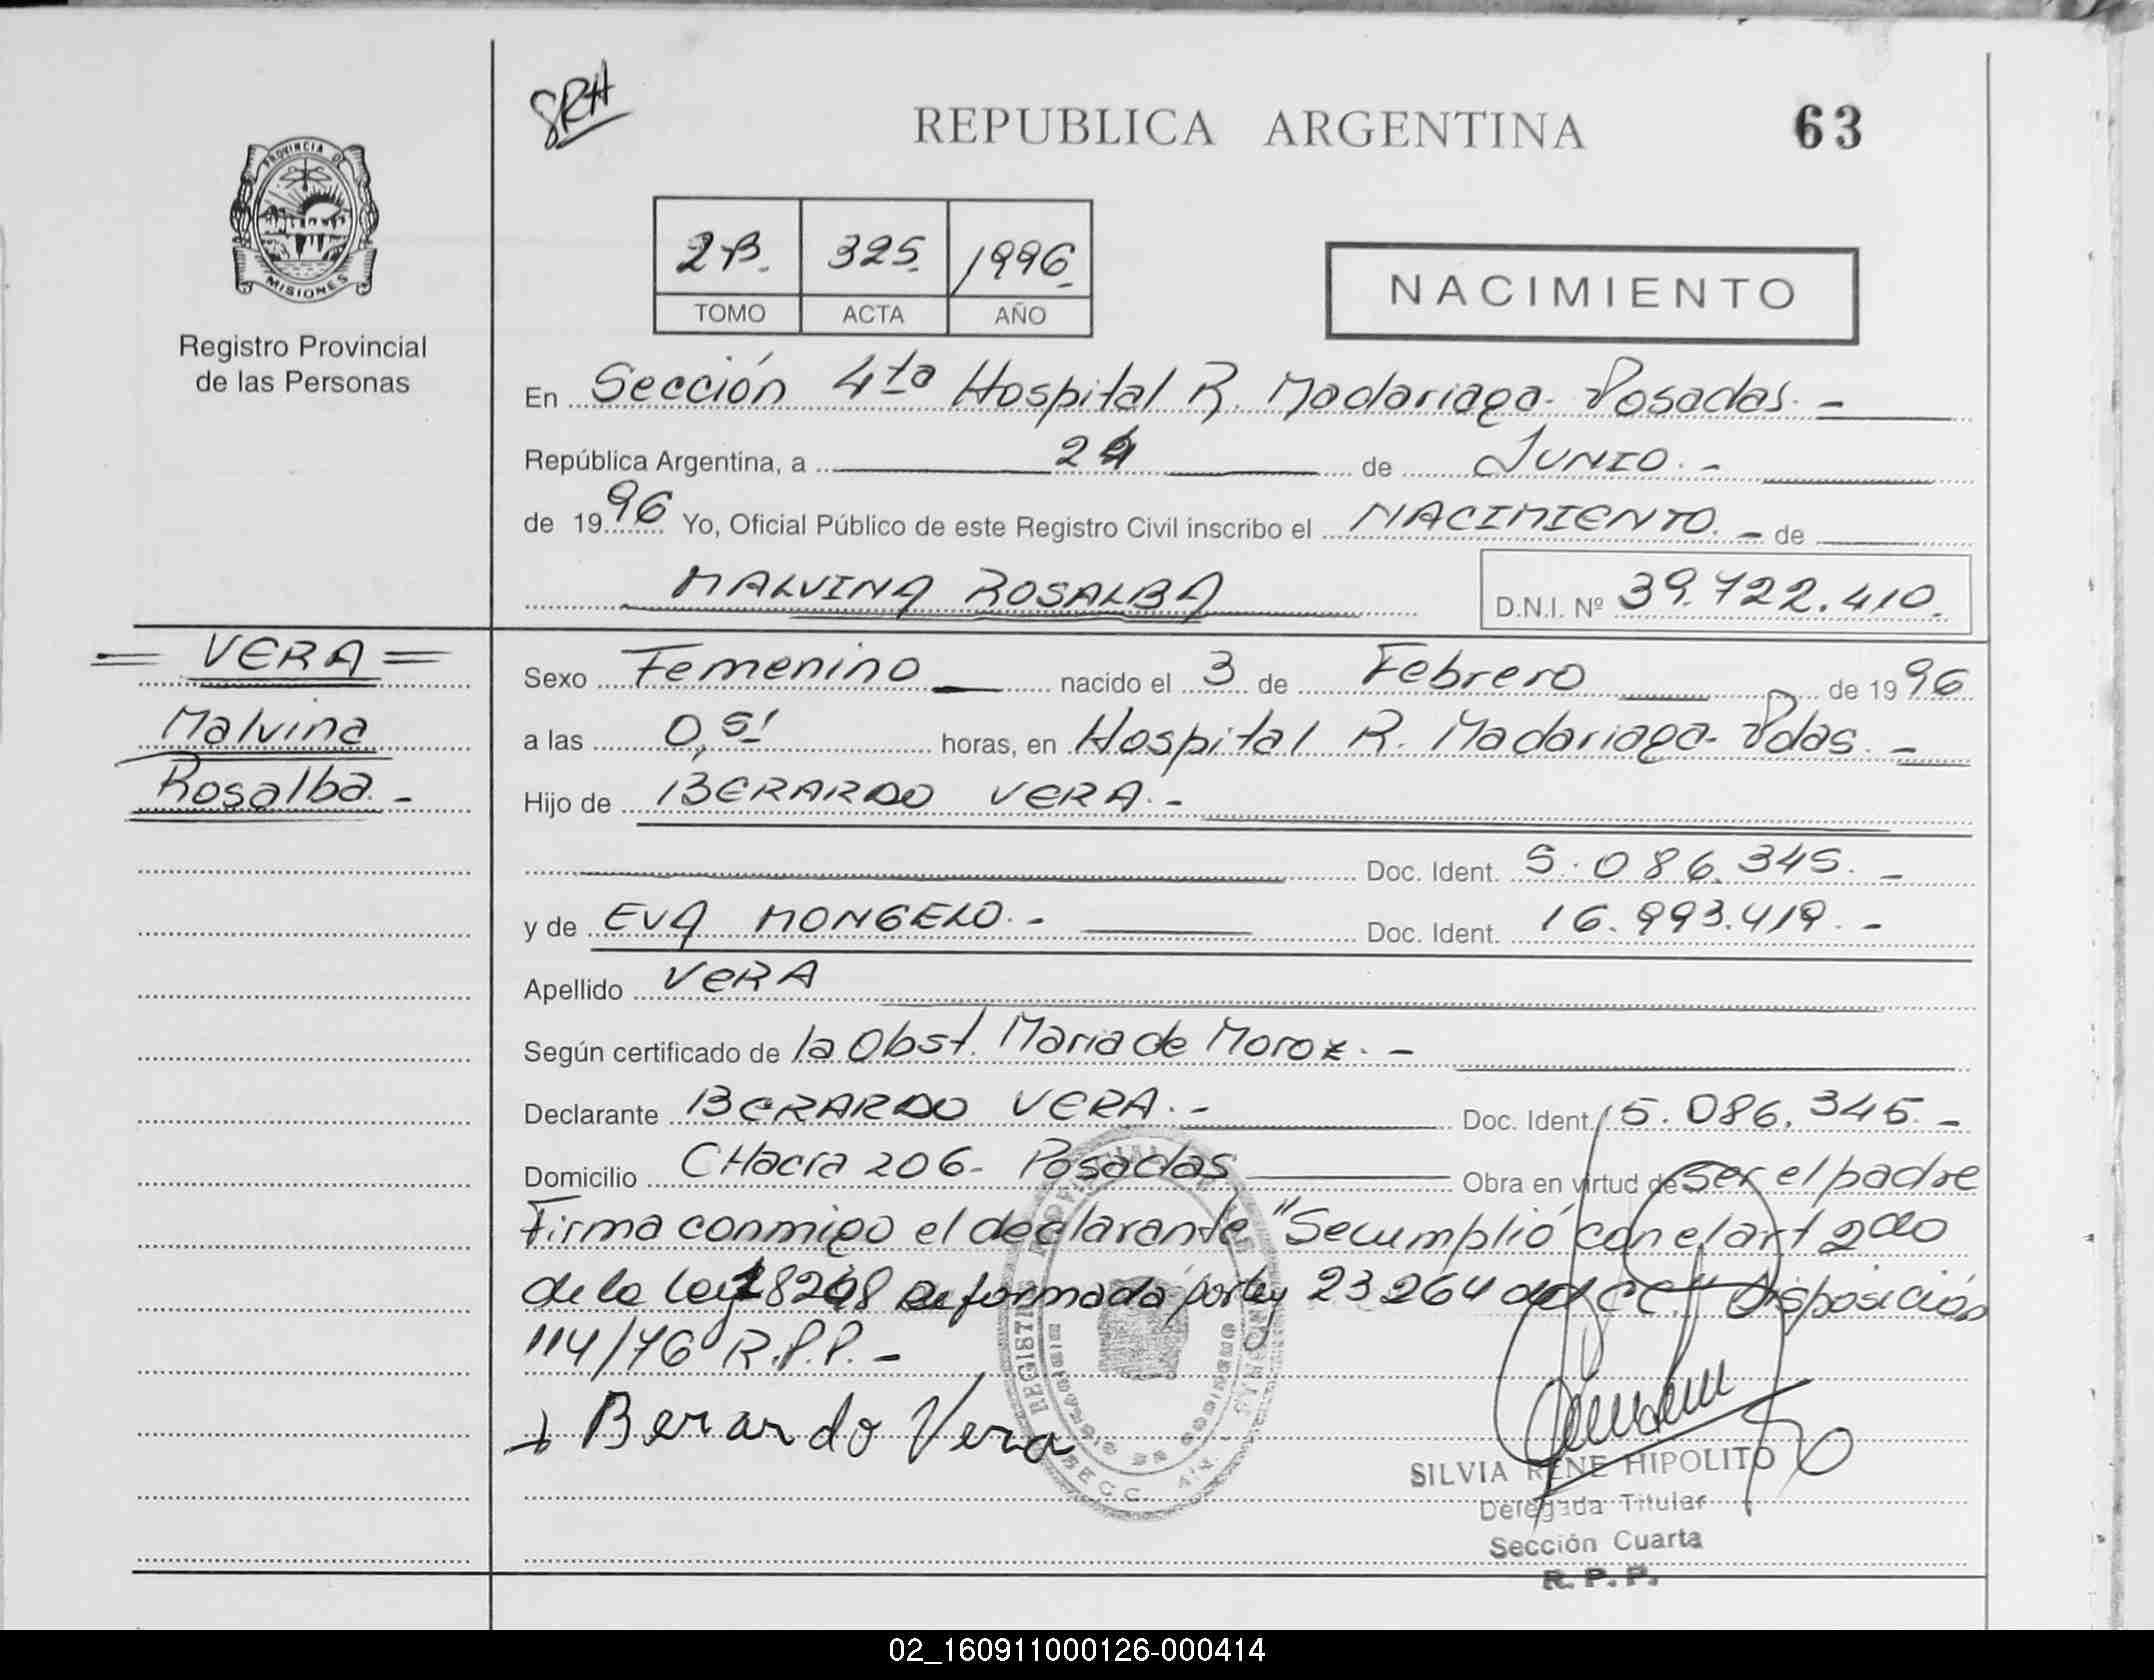 SRH
REPUBLICA ARGENTINA
63
PROVINCIA DE
MISIONES
Registro Provincial
de las Personas
2-B. 325. 1996
TOMO ACTA AÑO
NACIMIENTO
En Sección 4ta Hospital R. Madariaga- Posadas. -
República Argentina, a 24 de JUNIO. -
de 1996 Yo, Oficial Público de este Registro Civil inscribo el NACIMIENTO. - de
MALVINA ROSALBA
D.N.I. Nº 39.722.410.
= VERA =
Malvina
Rosalba. -
Sexo Femenino nacido el 3 de Febrero de 1996
a las 0,51 horas, en Hospital R. Madariaga- Pdas. -
Hijo de BERARDO VERA. -
Doc. Ident. 5.086.345. -
y de EVA MONGELO. - Doc. Ident. 16.993.419. -
Apellido VERA
Según certificado de la Obst. Maria de Moroz. -
Declarante BERARDO VERA. - Doc. Ident. 5.086.345. -
Domicilio CHacra 206- Posadas Obra en virtud de Ser el padre
Firma conmigo el declarante "Se cumplió con el art 2do
de la Ley 18248 Reformada por Ley 23264 del CC" Disposición
114/76 R.P.P. -
Berardo Vera
SILVIA RENE HIPOLITO
Delegada Titular
Sección Cuarta
R. P. P.
02_160911000126-000414